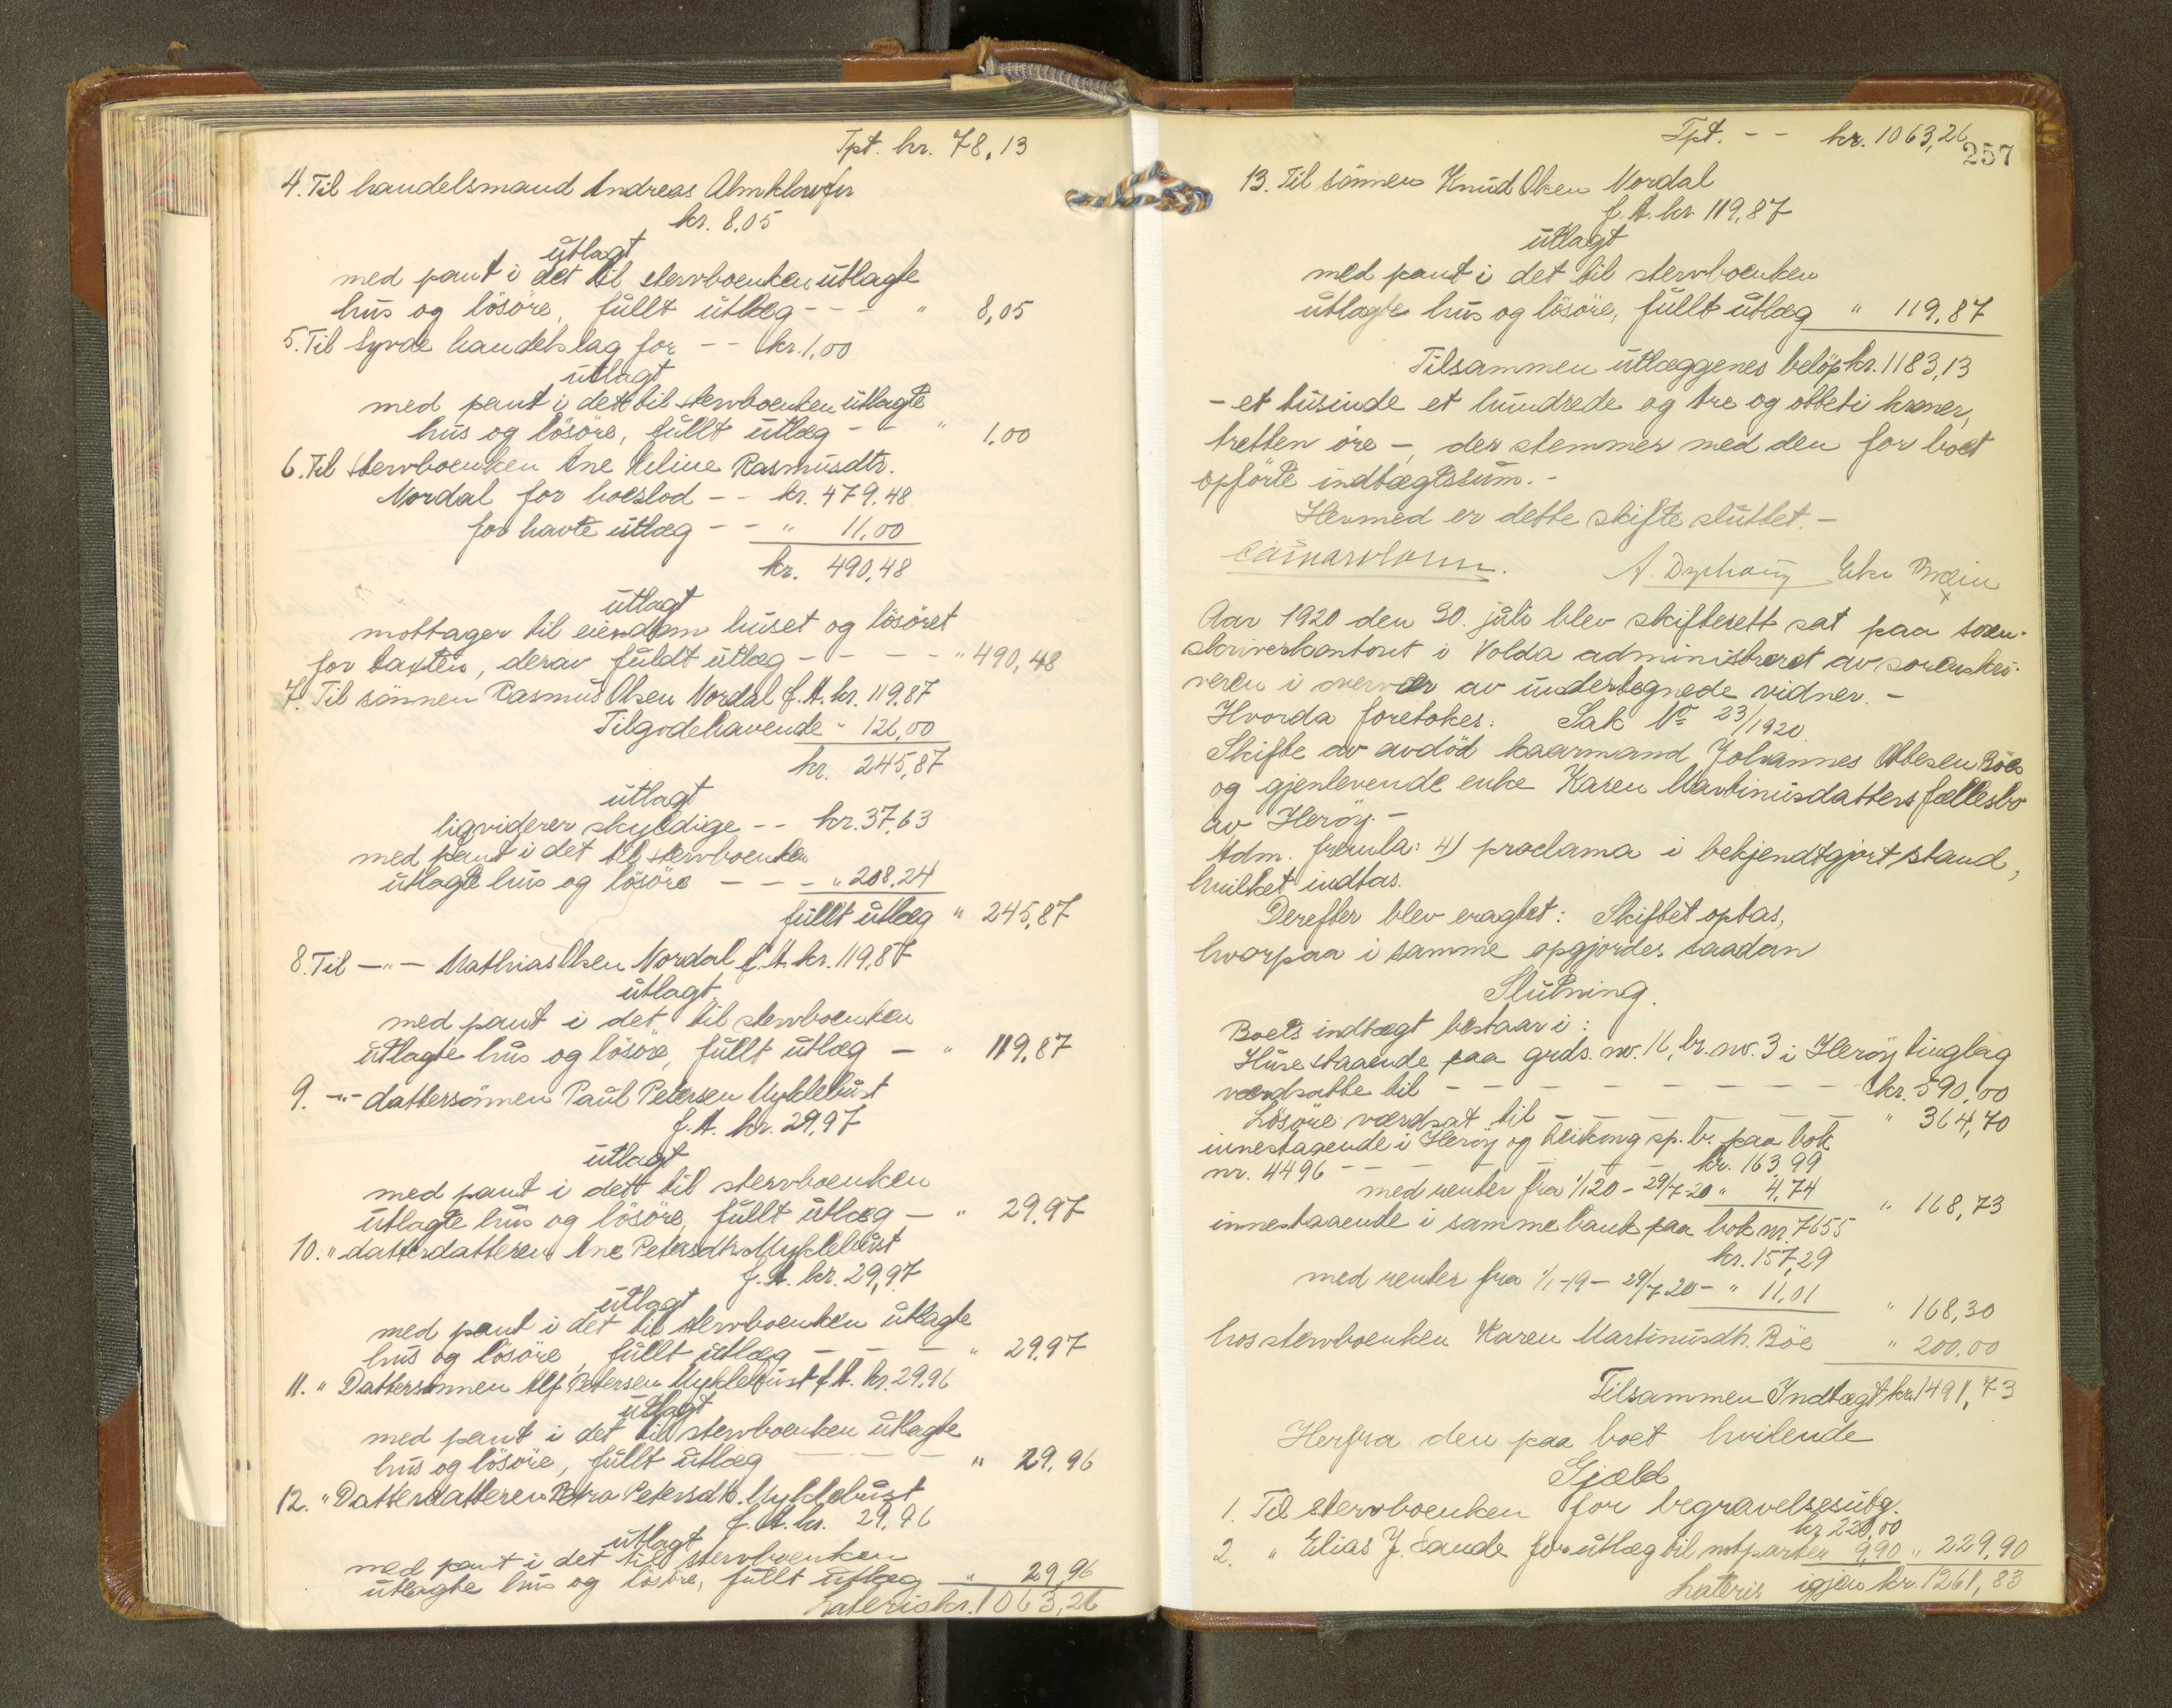 Tpt. kr. 78,13
4. Til handelsmand Andreas Almklov for
kr. 8,05
utlagt
med pant i det til stervboenken utlagte
hus og lösöre, fullt utlæg - - - " 8,05
5. Til Syvde handelslag for - - kr. 1,00
utlagt
med pant i dett til stervboenken utlagte
hus og lösöre, fullt utlæg - - " 1.00
6. Til stervboenken Ane Rasmusdtr.
Nordal for boeslod - - kr. 479.48
for havte utlæg - - " 11,00
kr. 490,48
utlagt
mottager til eiendom huset og lösöret
for taxten, derav fuldt utlæg - - - - " 490,48
7. Til sönnen Rasmus Olsen Nordal f. A. kr. 119,87
Tilgodehavende " 126,00
kr. 245,87
utlagt
liqviderer skyldige - - kr. 37,63
med pant i det til stervboenken
utlagte hus og lösöre - - - " 208,24
fullt utlæg " 245,87
8. Til -"- Mathias Olsen Nordal f. A. kr. 119,87
utlagt
med pant i det til stervboenken
utlagte hus og lösöre, fullt utlæg - " 119,87
9. -"- dattersönnen Paul Petersen Myklebust
f. A. kr. 29,97
utlagt
med pant i dett til stervboenken
utlagte hus og lösöre, fullt utlæg - " 29,97
10. " datterdatteren Ane Petersdtr. Myklebust
f. A. kr. 29,97
utlagt
med pant i det til stervboenken utlagte
hus og lösöre, fullt utlæg - - - " 29,97
11. " Dattersönnen Alf Petersen Myklebust f. A. kr. 29,96
utlagt
med pant i det til stervboenken utlagte
hus og lösöre, fullt utlæg - - - " 29,96
12. " Datterdatteren Petra Petersdtr. Myklebust
f. A. kr. 29,96
utlagt
med pant i det til stervboenken
utlagte hus og lösöre, fullt utlæg - " 29,96
Lateris kr. 1063,26
Tpt. - - kr. 1063,26
257
13. Til sönnen Knud Olsen Nordal
f. A. kr. 119,87
utlagt
med pant i det til stervboenken
utlagte hus og lösöre, fullt utlæg " 119,87
Tilsammen utlæggenes belöp kr. 1183,13
- et tusinde et hundrede og tre og otteti kroner,
tretten öre -, der stemmer med den for boet
opförte indtægtssum. -
Hermed er dette skifte sluttet. -
A. Dyrhaug
x
Aar 1920 den 30. juli blev skifterett sat paa soren-
skriverkontoret i Volda administreret av sorenskri-
veren i overvær av undertegnede vidner. -
Hvorda foretokes: Sak No 23/1920.
Skifte av avdöd kaarmand Johannes Ottesen Böes
og gjenlevende enke Karen Martinusdatters fællesbo
av Heröy. -
Adm. fremla: 4) proclama i bekjendtgjort stand,
hvilket indtas.
Derefter blev eragtet: Skiftet optas,
hvorpaa i samme opgjordes saadan
Slutning.
Boets indtægt bestaar i:
Huse staaende paa grds. nr. 16, br. nr. 3 i Heröy tinglag
værdsatte til - - - - - - - - kr. 590,00
Lösöre værdsat til - - - - - - " 364,70
innestaaende i Heröy og Leikong sp. b. paa bok
nr. 4496 - - - - - - kr. 163,99
med renter fra 1/1 20 - 29/7-20 " 4,74 " 168,73
innestaaende i samme bank paa bok nr. 7655
kr. 157,29
med renter fra 1/1-19 - 29/7 20 - " 11,01 " 168,30
hos stervboenken Karen Martinusdtr. Böe " 200,00
Tilsammen Indtægt kr. 1491,73
Herfra den paa boet hvilende
Gjæld
1. Til stervboenken for begravelsesutg.
kr. 220,00
2. " Elias J. Sande for utlæg til motparten 9,90 " 229,90
Lateris igjen kr. 1261,83